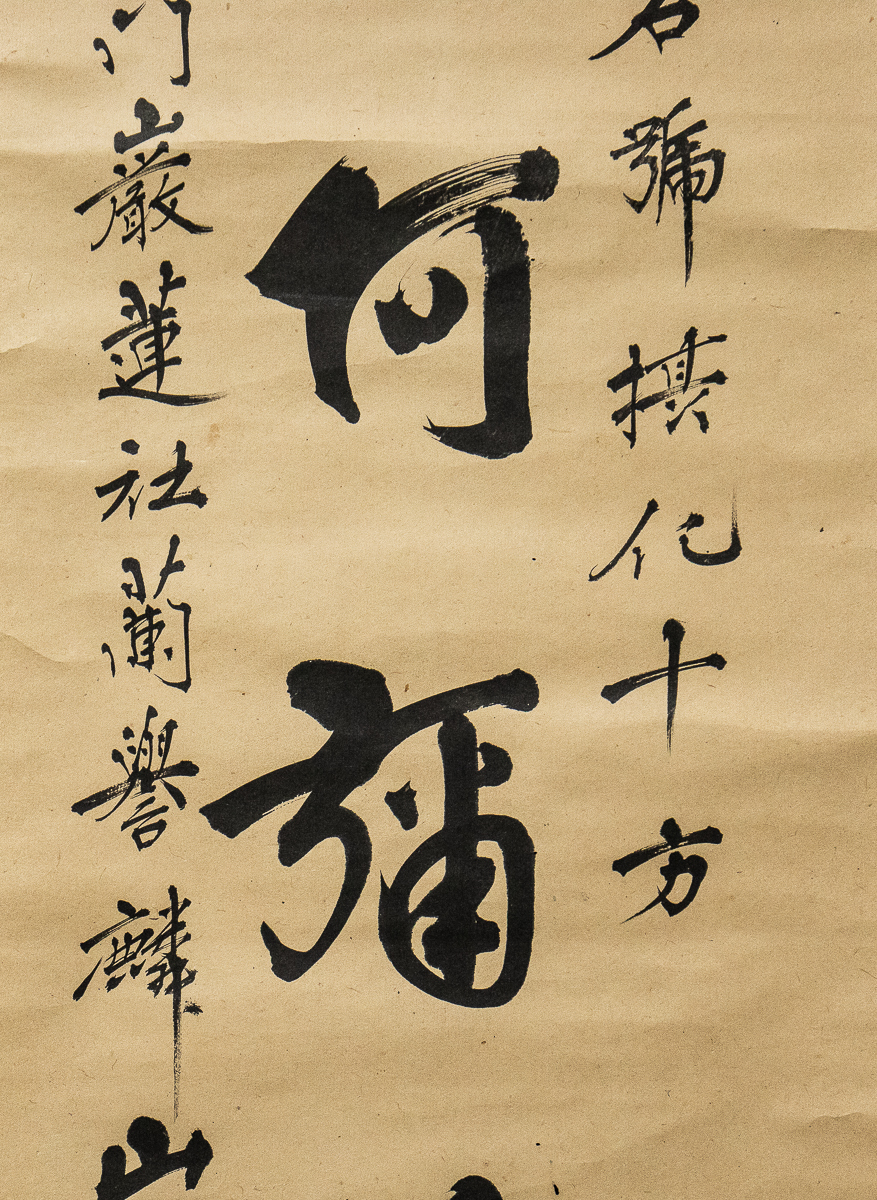 名號摂化十方
阿彌
門巖蓮社蘭譽麟山